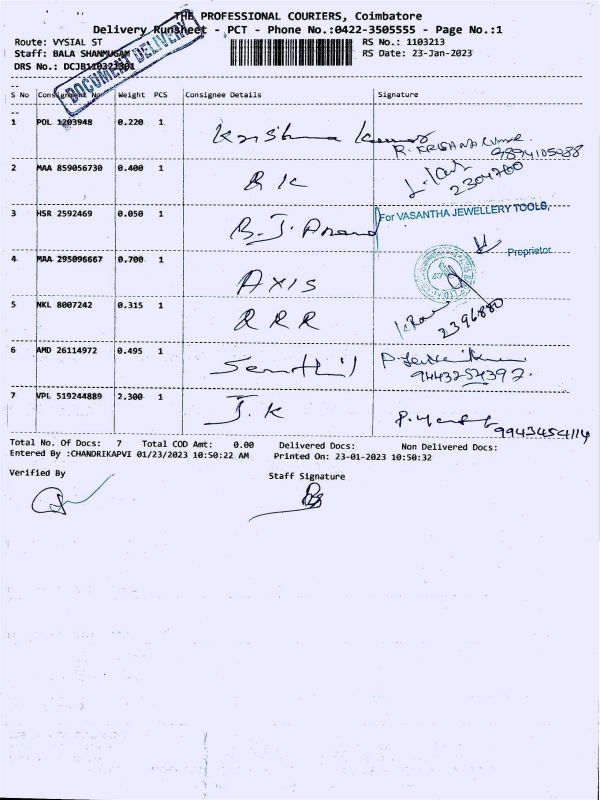 THE PROFESSIONAL COURIERS, Coimbatore
Delivery Runsheet - PCT - Phone No.:0422-3505555 - Page No.:1
Route: VYSIAL ST RS No.: 1103213
Staff: BALA SHANMUGAM RS Date: 23-Jan-2023
DRS No.:
DOCUMENT DELIVERY
S No Consignment No Weight PCS Consignee Details Signature
1 POL 1203948 0.220 1 Krishna Kumar R. KRISHNA KUMAR
9894105088
2 MAA 859056730 0.400 1 R K
2304700
3 HSR 2592469 0.050 1 B.J. Anand For VASANTHA JEWELLERY TOOLS,
Proprietor
4 MAA 295096667 0.700 1 AXIS
5 NKL 8007242 0.315 1 R R R
2396880
6 AMD 26114972 0.495 1 Senthil
9443254392.
7 VPL 519244889 2.300 1 J. K
9943454114
Total No. Of Docs: 7 Total COD Amt: 0.00 Delivered Docs: Non Delivered Docs:
Entered By :CHANDRIKAPVI 01/23/2023 10:50:22 AM Printed On: 23-01-2023 10:50:32
Verified By Staff Signature